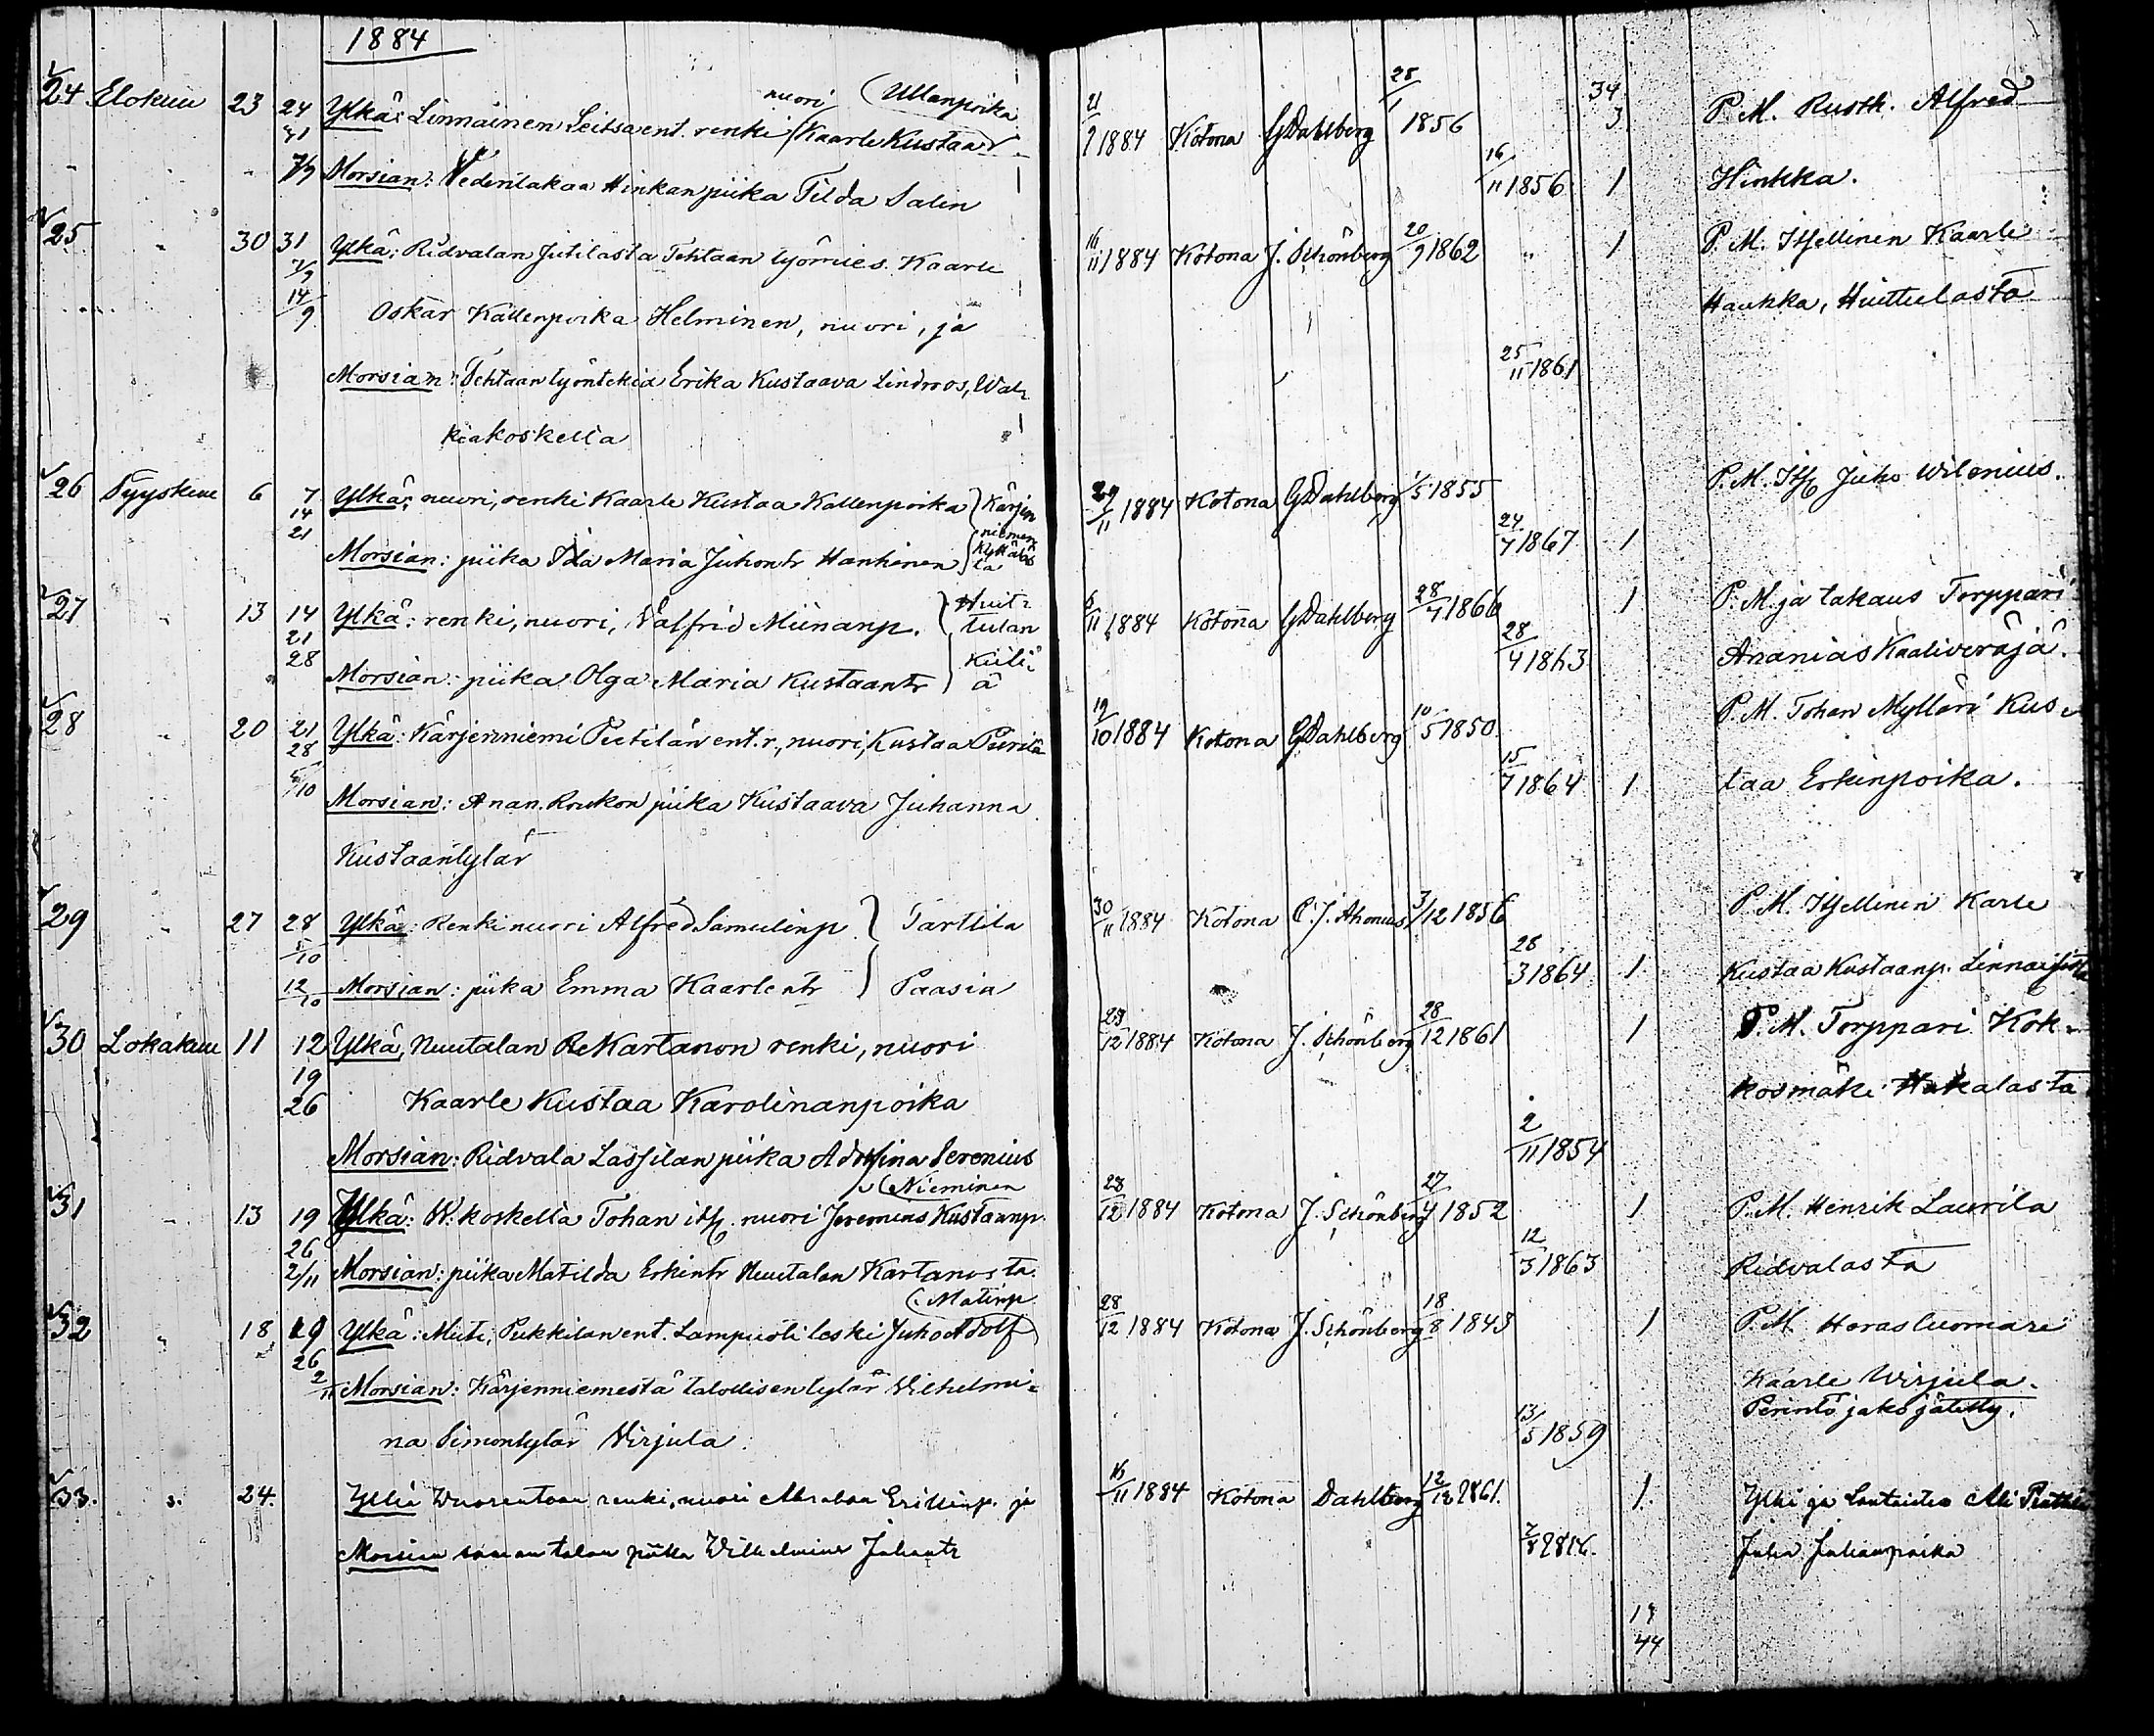 1884
24 Elokuu 23 24 Ylkä: Linnäinen Seitsa ent. renki nuori (Ullanpoika
31 Kaarle Kustaa)
7/9 Morsian: Vedentakaa Hinkan piika Tilda Salin
25 " 30 31 Ylkä: Ridvalan Jutilasta Tehtaan työmies Kaarle
7/9
14/9 Oskar Kallenpoika Helminen, nuori, ja
Morsian: Tehtaan työntekiä Erika Kustaava Lindroos, Wal-
kiakoskella
26 Syyskuu 6 7 Ylkä: nuori, renki Kaarle Kustaa Kallenpoika } Kärjen
14 niemen
21 Morsian: piika Ida Maria Juhontr Hanhinen
27 " 13 14 Ylkä: renki, nuori, Valfrid Miinanp. } Huit-
21 tulan
28 Morsian: piika Olga Maria Kustaantr
28 " 20 21 Ylkä: Kärjenniemi Peetilän ent. r., nuori, Kustaa
28
5/10 Morsian: Anan. Roukon piika Kustaava Juhanna
Kustaantytär
29 " 27 28 Ylkä: Renki nuori Alfred Samulinp. } Tarttila
5/10
12/10 Morsian: piika Emma Kaarlentr } Paasia
30 Lokakuu 11 12 Ylkä, Nuutalan Kartanon renki, nuori
19
26 Kaarle Kustaa Karolinanpoika
Morsian: Ridvala Lassilan piika Adolfina Serenius
31 " 13 19 Ylkä: W:koskella Tohan its. nuori Jeremias Kustaanp. (Nieminen
26
2/11 Morsian: piika Matilda Erkintr Nuutalan Kartanosta.
32 " 18 19 Ylkä: Muti, Pukkilan ent. Lampuoti leski Juho Adolf (Matinp.
26
2/11 Morsian: Kärjenniemestä talollisen tytär Vilhelmi-
na Simontytär Virjula.
33. " 24. Ylkä Wuorentaan renki, nuori Abraham Erikinp. ja
Morsian saman talon piika Wilhelmina Juhantr
34
21/9 1884 Kotona GDahlberg 25/1 1856 3 P. M. Rusth. Alfred
16/11 1856 1 Hinkka.
16/11 1884 Kotona J. Schönberg 20/9 1862 " 1 P. M. Itsellinen Kaarle
Haukka, Huittulasta
25/11 1861
29/11 1884 Kotona GDahlberg 1/5 1855 P. M. Its. Juho Wilenius.
24/7 1867 1
11 1884 Kotona GDahlberg 28/7 1866 1 P. M. ja takaus Torppari
28/4 1863 Ananias Kaaliveräjä.
19/10 1884 Kotona GDahlberg 10/5 1850 P. M. Tohan Mylläri Kus-
15/7 1864 1 taa Erkinpoika.
30/11 1884 Kotona C. J. Ahonius 3/12 1856 P. M. Itsellinen Karle
26/3 1864 1 Kustaa Kustaanp.
29/12 1884 Kotona J. Schönberg 28/12 1861 1 P. M. Torppari Kok-
kosmäki Hakalasta
2/11 1854
28/12 1884 Kotona J. Schönberg 27/4 1852 1 P. M. Henrik Laurila
12/3 1863 Ridvalasta
28/12 1884 Kotona J. Schönberg 18/8 1843 1 P. M. Herastuomari
Kaarle Wirjula.
13/5 1859 Perintö jako jätetty.
16/11 1884 Kotona Dahlberg 12/12 1861. 1 Ylkä ja
Juha Juhanpoika
19
44